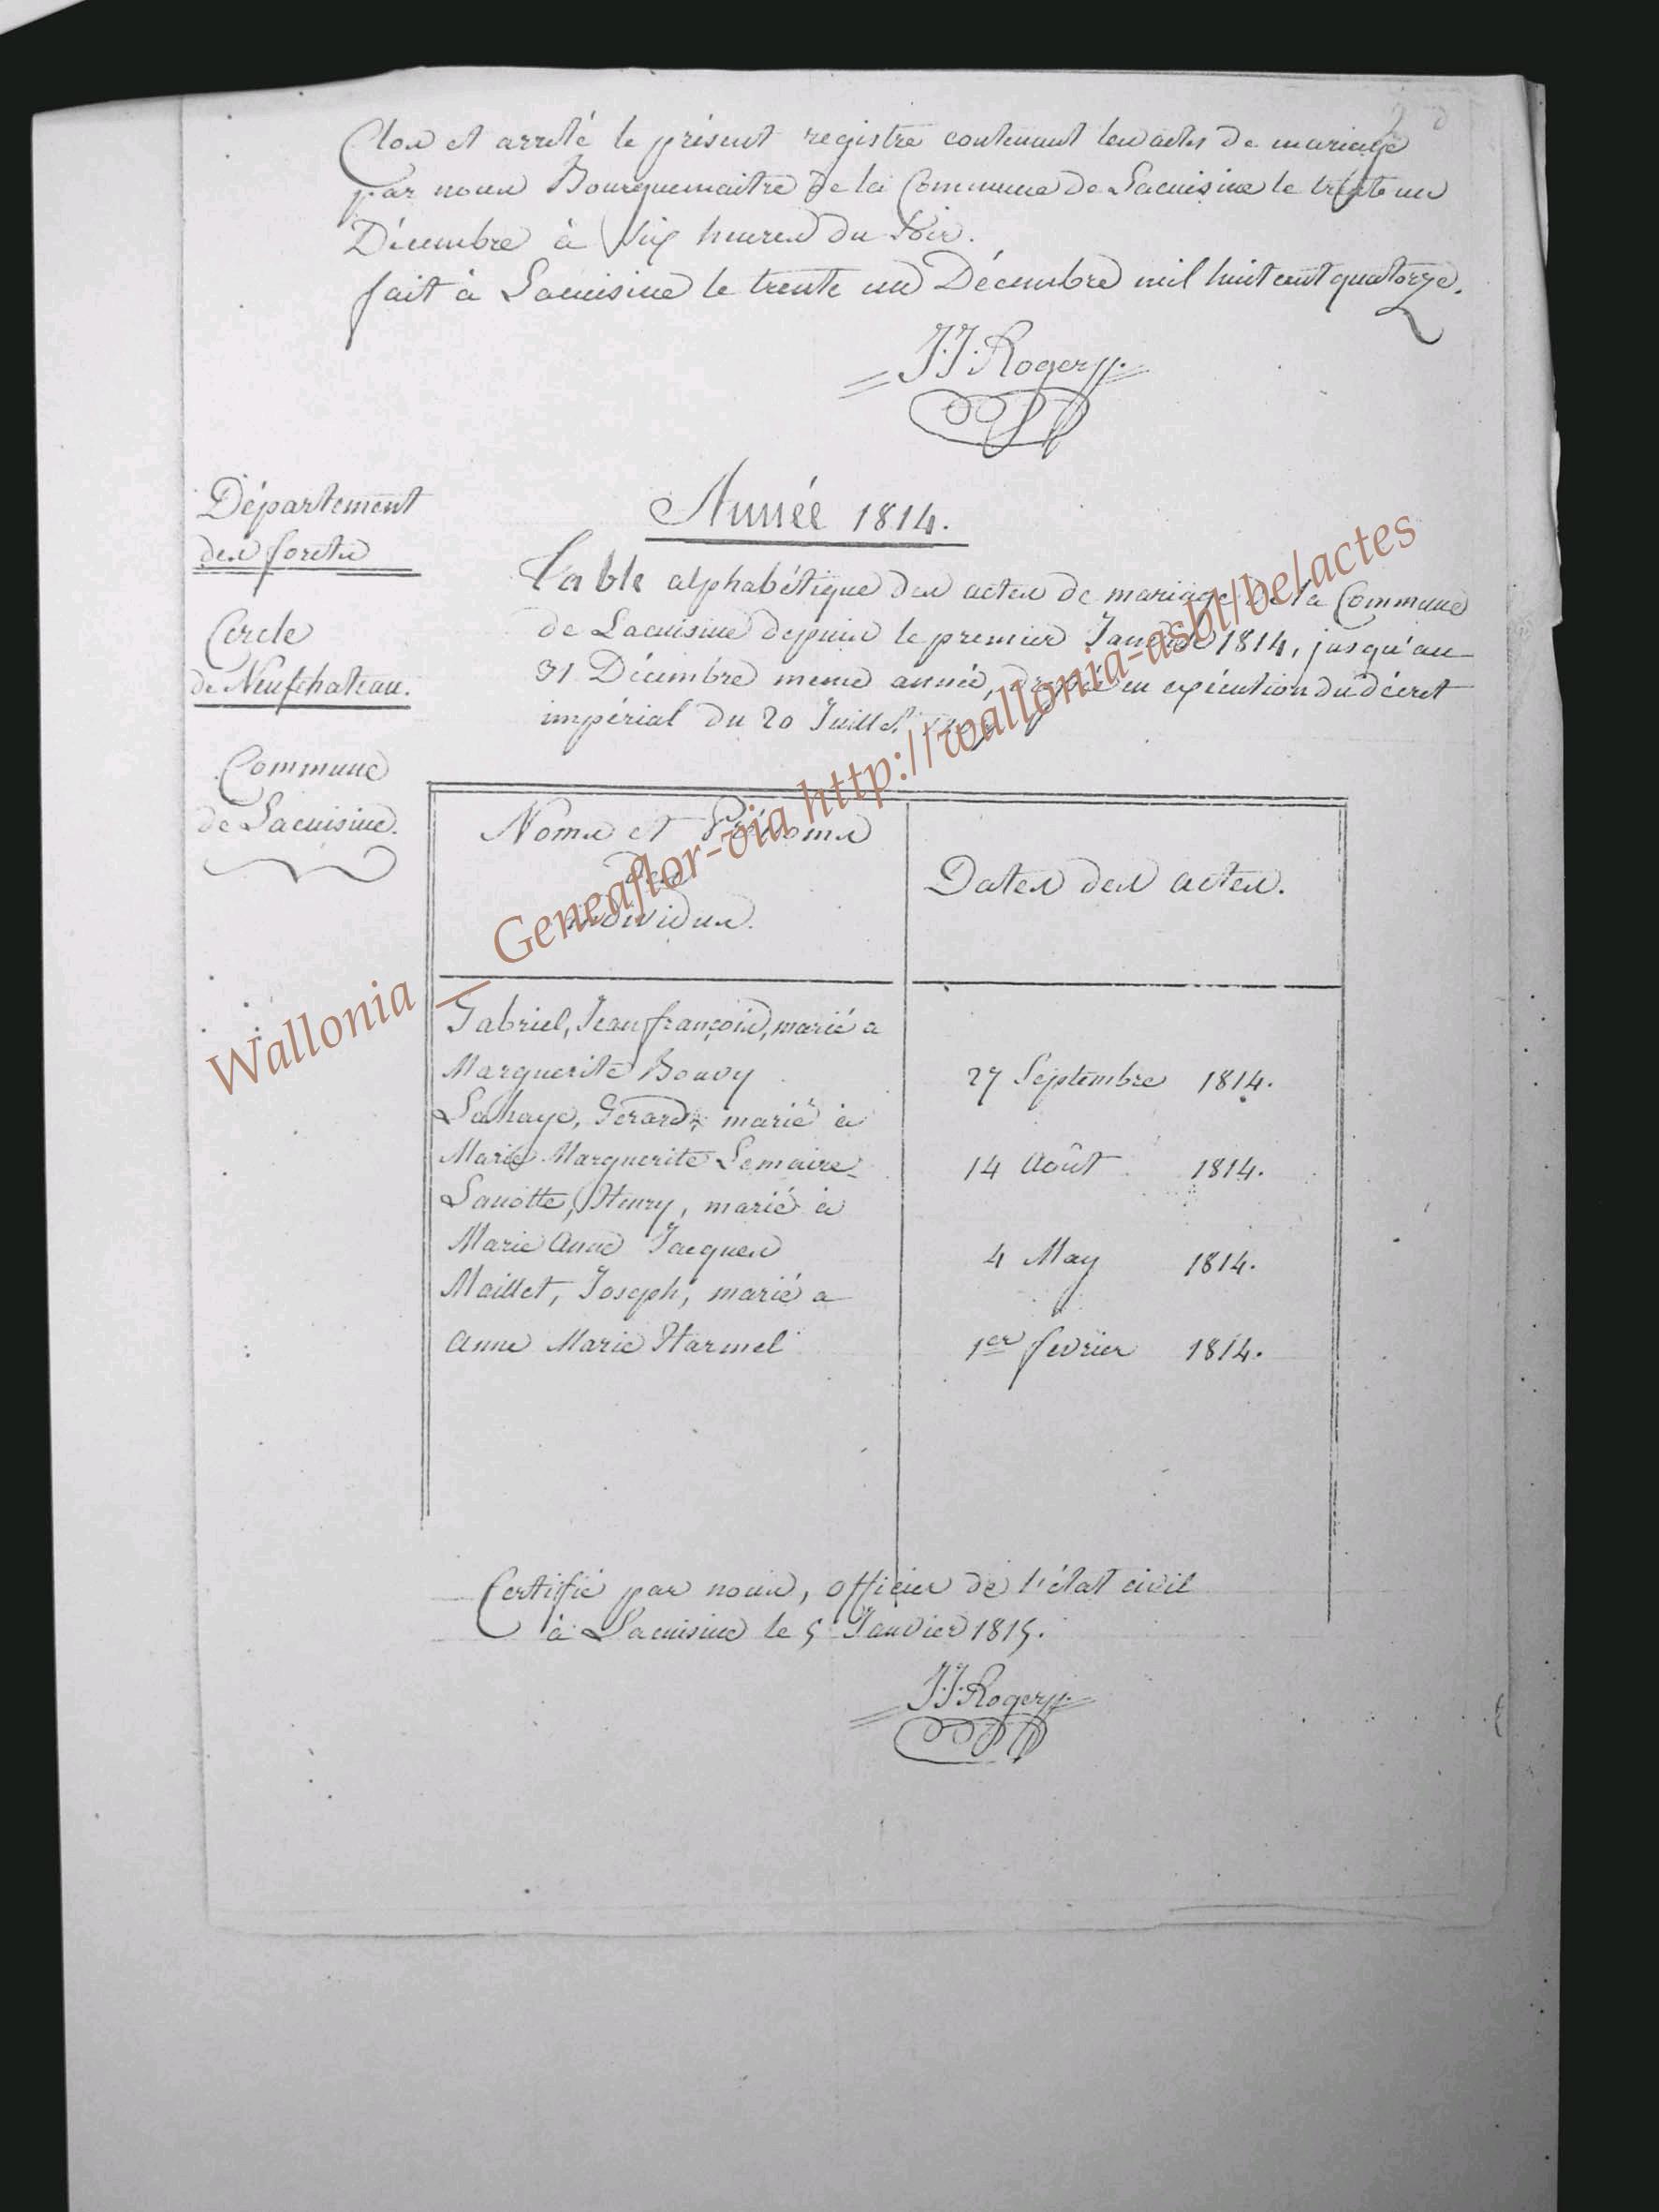 Clos et arrêté le présent registre contenant les actes de mariage
par nous Bourguemaitre de la Commune de Lacuisine le trente un
Décembre à six heures du soir.
fait à Lacuisine le trente un Décembre mil huit cent quatorze.
J.J. Rogery
Département
des forêts
Cercle
de Neufchateau.
Commune
de Lacuisine.
Année 1814.
Table alphabétique des actes de mariage de la Commune
de Lacuisine depuis le premier Janvier 1814, jusqu'au
31 Décembre meme année, en exécution du décret
impérial du 20 Juillet
Noms et Prénoms
des
individus.
Dates des actes.
Gabriel, Jean françois, marié a
Marguerite Bouvy 27 Septembre 1814.
Lahaye, Gerard, marié à
Marie Marguerite Lemaire 14 Août 1814.
Lanotte, Henry, marié à
Marie Anne Jacques 4 May 1814.
Maillet, Joseph, marié a
Anne Marie Harmel 1er fevrier 1814.
Certifié par nous, officier de l'état civil
à Lacuisine le 5 Janvier 1815.
J.J. Rogery
Wallonia _ Geneaflor-via http://wallonia-asbl/be/actes